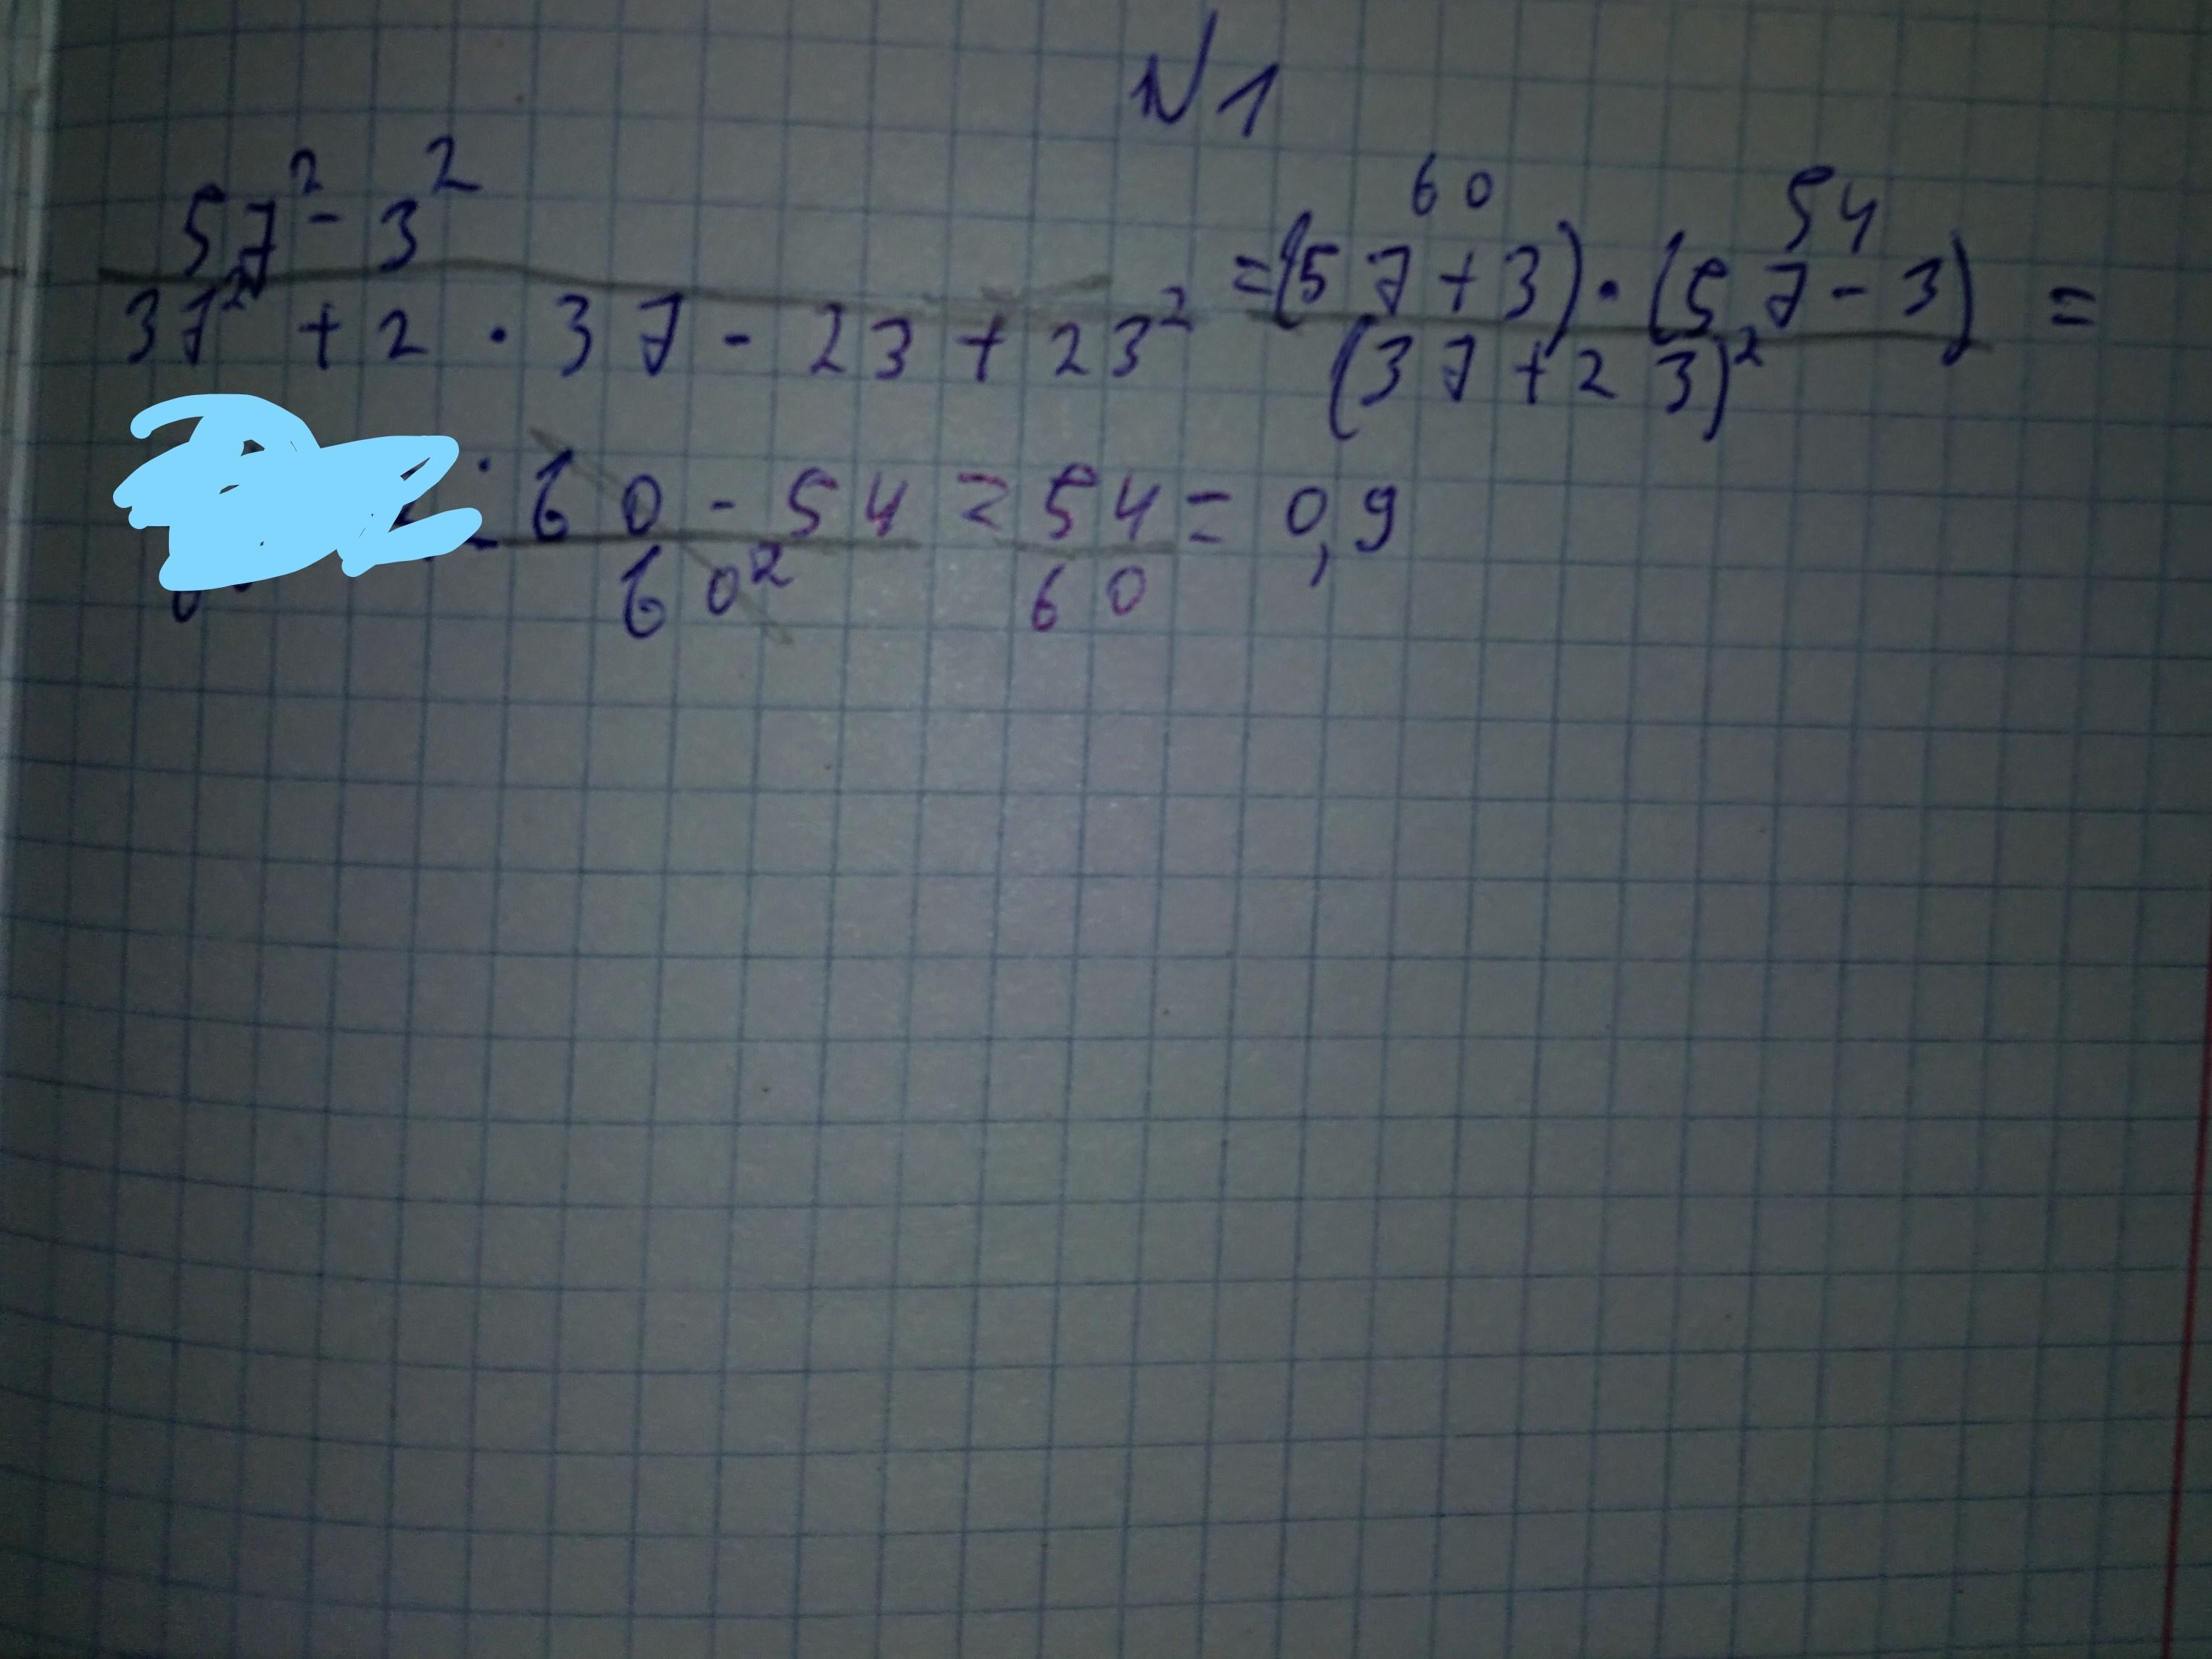 N1
(57² - 3²)/(37² + 2 · 37 - 23 + 23²) = ((57 + 3) · (57 - 3))/((37 + 23)²) =
60 54
60 - 54/60² = 54/60 = 0,9